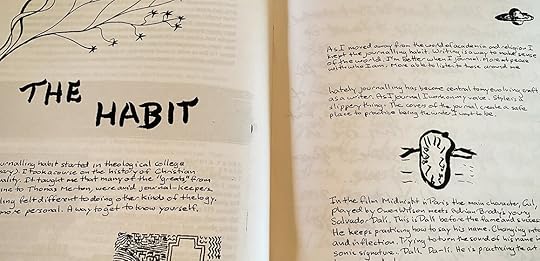 THE
HABIT
journalling habit started in theological college
ary). I took a course on the history of Christian
uality. It taught me that many of the "greats," from
ine to Thomas Merton, were avid journal-keepers.
ling felt different to doing other kinds of theology.
more personal. A way to get to know yourself.
As I moved away from the world of academia and religion I
kept the journalling habit. Writing is a way to make sense
of the world. I'm better when I journal. More at peace
with who I am. More able to listen to those around me.
Lately, journalling has become central to my evolving craft
as a writer. As I journal I work on my voice. Style is a
slippery thing. The covers of the journal create a safe
place to practise being the writer I want to be.
In the film Midnight in Paris the main character, Gil,
played by Owen Wilson meets Adrian Brody's young
Salvador Dali. This is Dali before the fame and success.
He keeps practicing how to say his name. Changing into
and inflection. Trying to turn the sound of his name in
sonic signature. Dali. Da-li. He is practicing the art